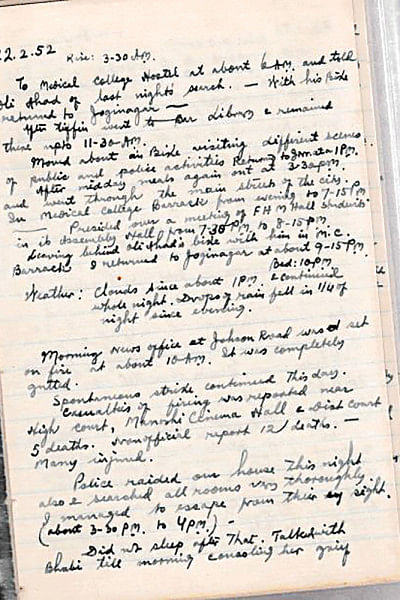 22.2.52 Rise: 3-30 AM.
To Medical College Hostel at about 6 A.M. and told
Oli Ahad of last night's search. — With his Bike
returned to Joginagar —
After tiffin went to Bar Library & remained
there upto 11-30 AM.
Moved about on Bike visiting different scenes
of public and police activities Returned to 1 P.M.
After midday meal again out at 3-30 P.M.
and went through the main streets of the city.
In Medical College Barrack from evening to 7-15 PM
— Presided over a meeting of F H M Hall Students
in its Assembly Hall from 7-30 P.M. to 8-15 P.M.
Leaving behind Oli Ahad's bike with him in M.C.
Barracks I returned to Joginagar at about 9-15 P.M.
Bed: 10 P.M.
Weather: Clouds since about 1 P.M. & continued
whole night. Drops of rain fell in 1/4 of
night since evening.
Morning News office at Johnson Road was set
on fire at about 10 A.M. It was completely
gutted.
Spontaneous strike continued this day.
Casualties of firing was reported near
High Court, Manoshi Cinema Hall & Dist Court
5 deaths. Unofficial report 12 deaths. —
Many injured.
Police raided our house this night
also & searched all rooms very thoroughly
I managed to escape from their sight.
(about 3-30 P.M. to 4 P.M.) —
Did not sleep after that. Talked with
Bhabi till morning consoling her grief